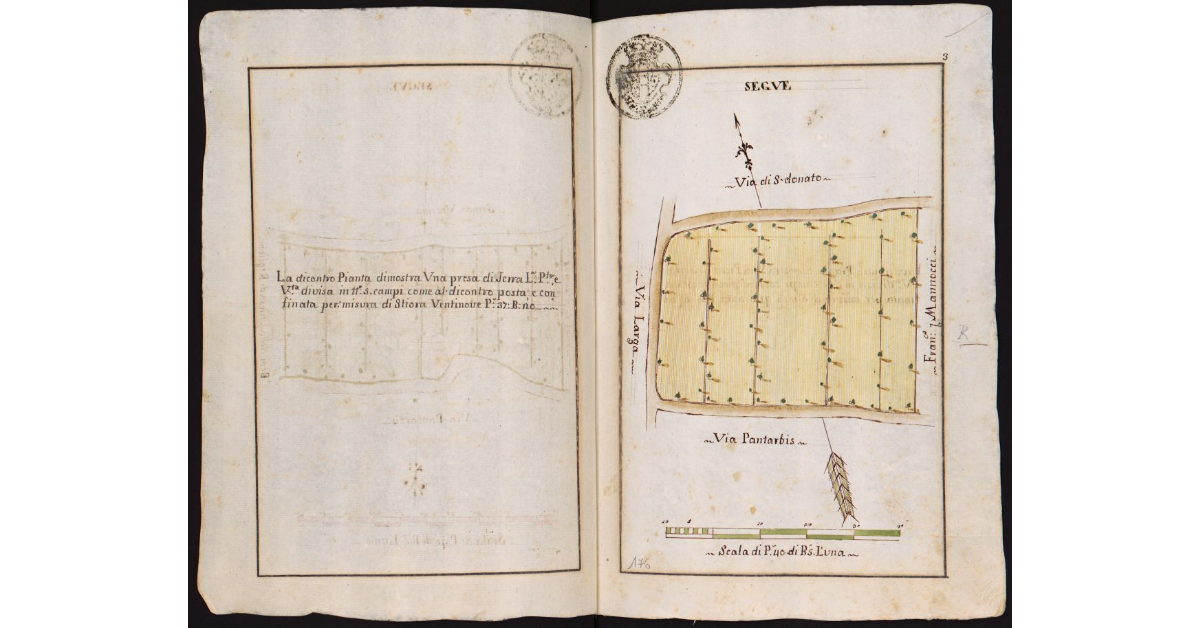 La dicontro Pianta dimostra Vna presa di Terra L:ª P:ta, e
V:ta divisa in n.º 5. campi come al dicontro posta e con
finata per misura di Stiora Ventinove P: 37: B: no
3
SEGVE
Via di S. donato
Via Larga
Fran:co Mannocci
R
Via Pantarbis
10 5 10 20 30 40
Scala di P: 40 di B: 5 L'una
176